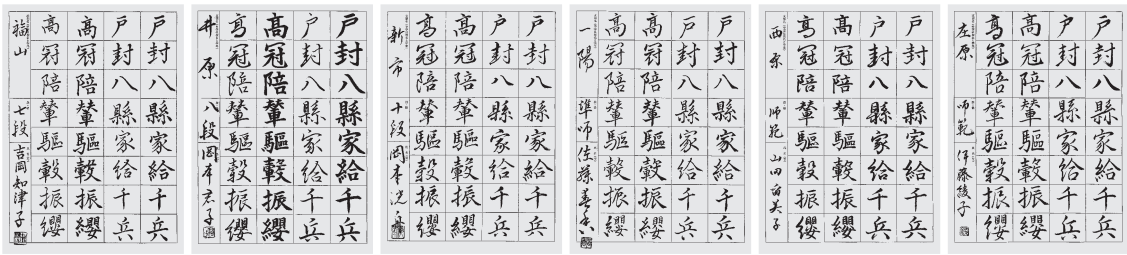 戸封八縣家給千兵
戸封八縣家給千兵
高冠陪輦驅轂振纓
高冠陪輦驅轂振纓
左原 師範 伊藤綾子
戸封八縣家給千兵
戸封八縣家給千兵
高冠陪輦驅轂振纓
高冠陪輦驅轂振纓
西条 師範 山田
戸封八縣家給千兵
戸封八縣家給千兵
高冠陪輦驅轂振纓
高冠陪輦驅轂振纓
一陽 準師
戸封八縣家給千兵
戸封八縣家給千兵
高冠陪輦驅轂振纓
高冠陪輦驅轂振纓
新市 十段 岡本
戸封八縣家給千兵
戸封八縣家給千兵
高冠陪輦驅轂振纓
高冠陪輦驅轂振纓
井原 八段 岡本君子
戸封八縣家給千兵
戸封八縣家給千兵
高冠陪輦驅轂振纓
高冠陪輦驅轂振纓
福山 七段 吉岡知津子